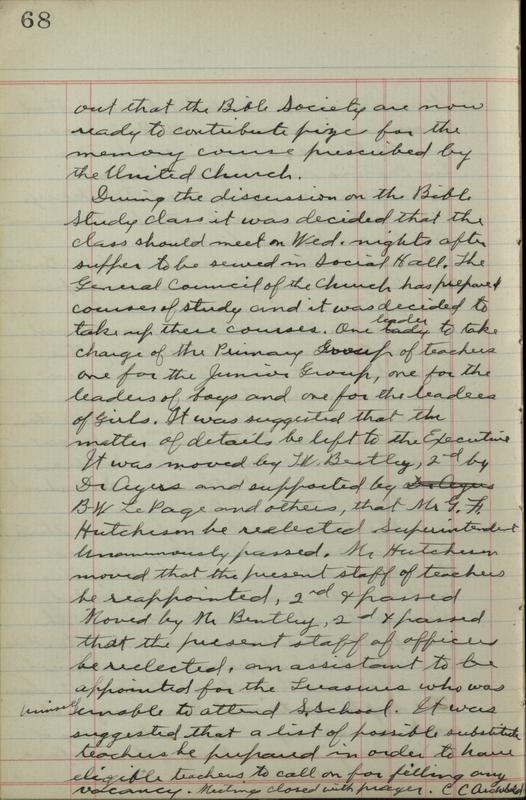 68
out that the Bible Society are now
ready to contribute prize for the
memory course prescribed by
the United Church.
During the discussion on the Bible
Study class it was decided that the
class should meet on Wed. nights after
supper to be served in Social Hall. The
General Council of the Church has prepared
courses of study and it was decided to
take up these courses. One leader to take
charge of the Primary Group of teachers
one for the Junior Group, one for the
leaders of boys and one for the leaders
of Girls. It was suggested that the
matter of details be left to the Executive
It was moved by T.W. Bentley, 2nd by
Dr Ayers and supported by Dr Ayers
B W LePage and others, that Mr G. F.
Hutcheson be reelected Superintendent
Unanimously passed. Mr Hutcheson
moved that the present staff of teachers
be reappointed, 2nd & passed
Moved by Mr Bentley, 2nd & passed
that the present staff of officers
be reelected, an assistant to be
appointed for the Treasurer who was
unable to attend S. School. It was
suggested that a list of possible substitute
teachers be prepared in order to have
eligible teachers to call on for filling any
vacancy. Meeting closed with prayer. C C